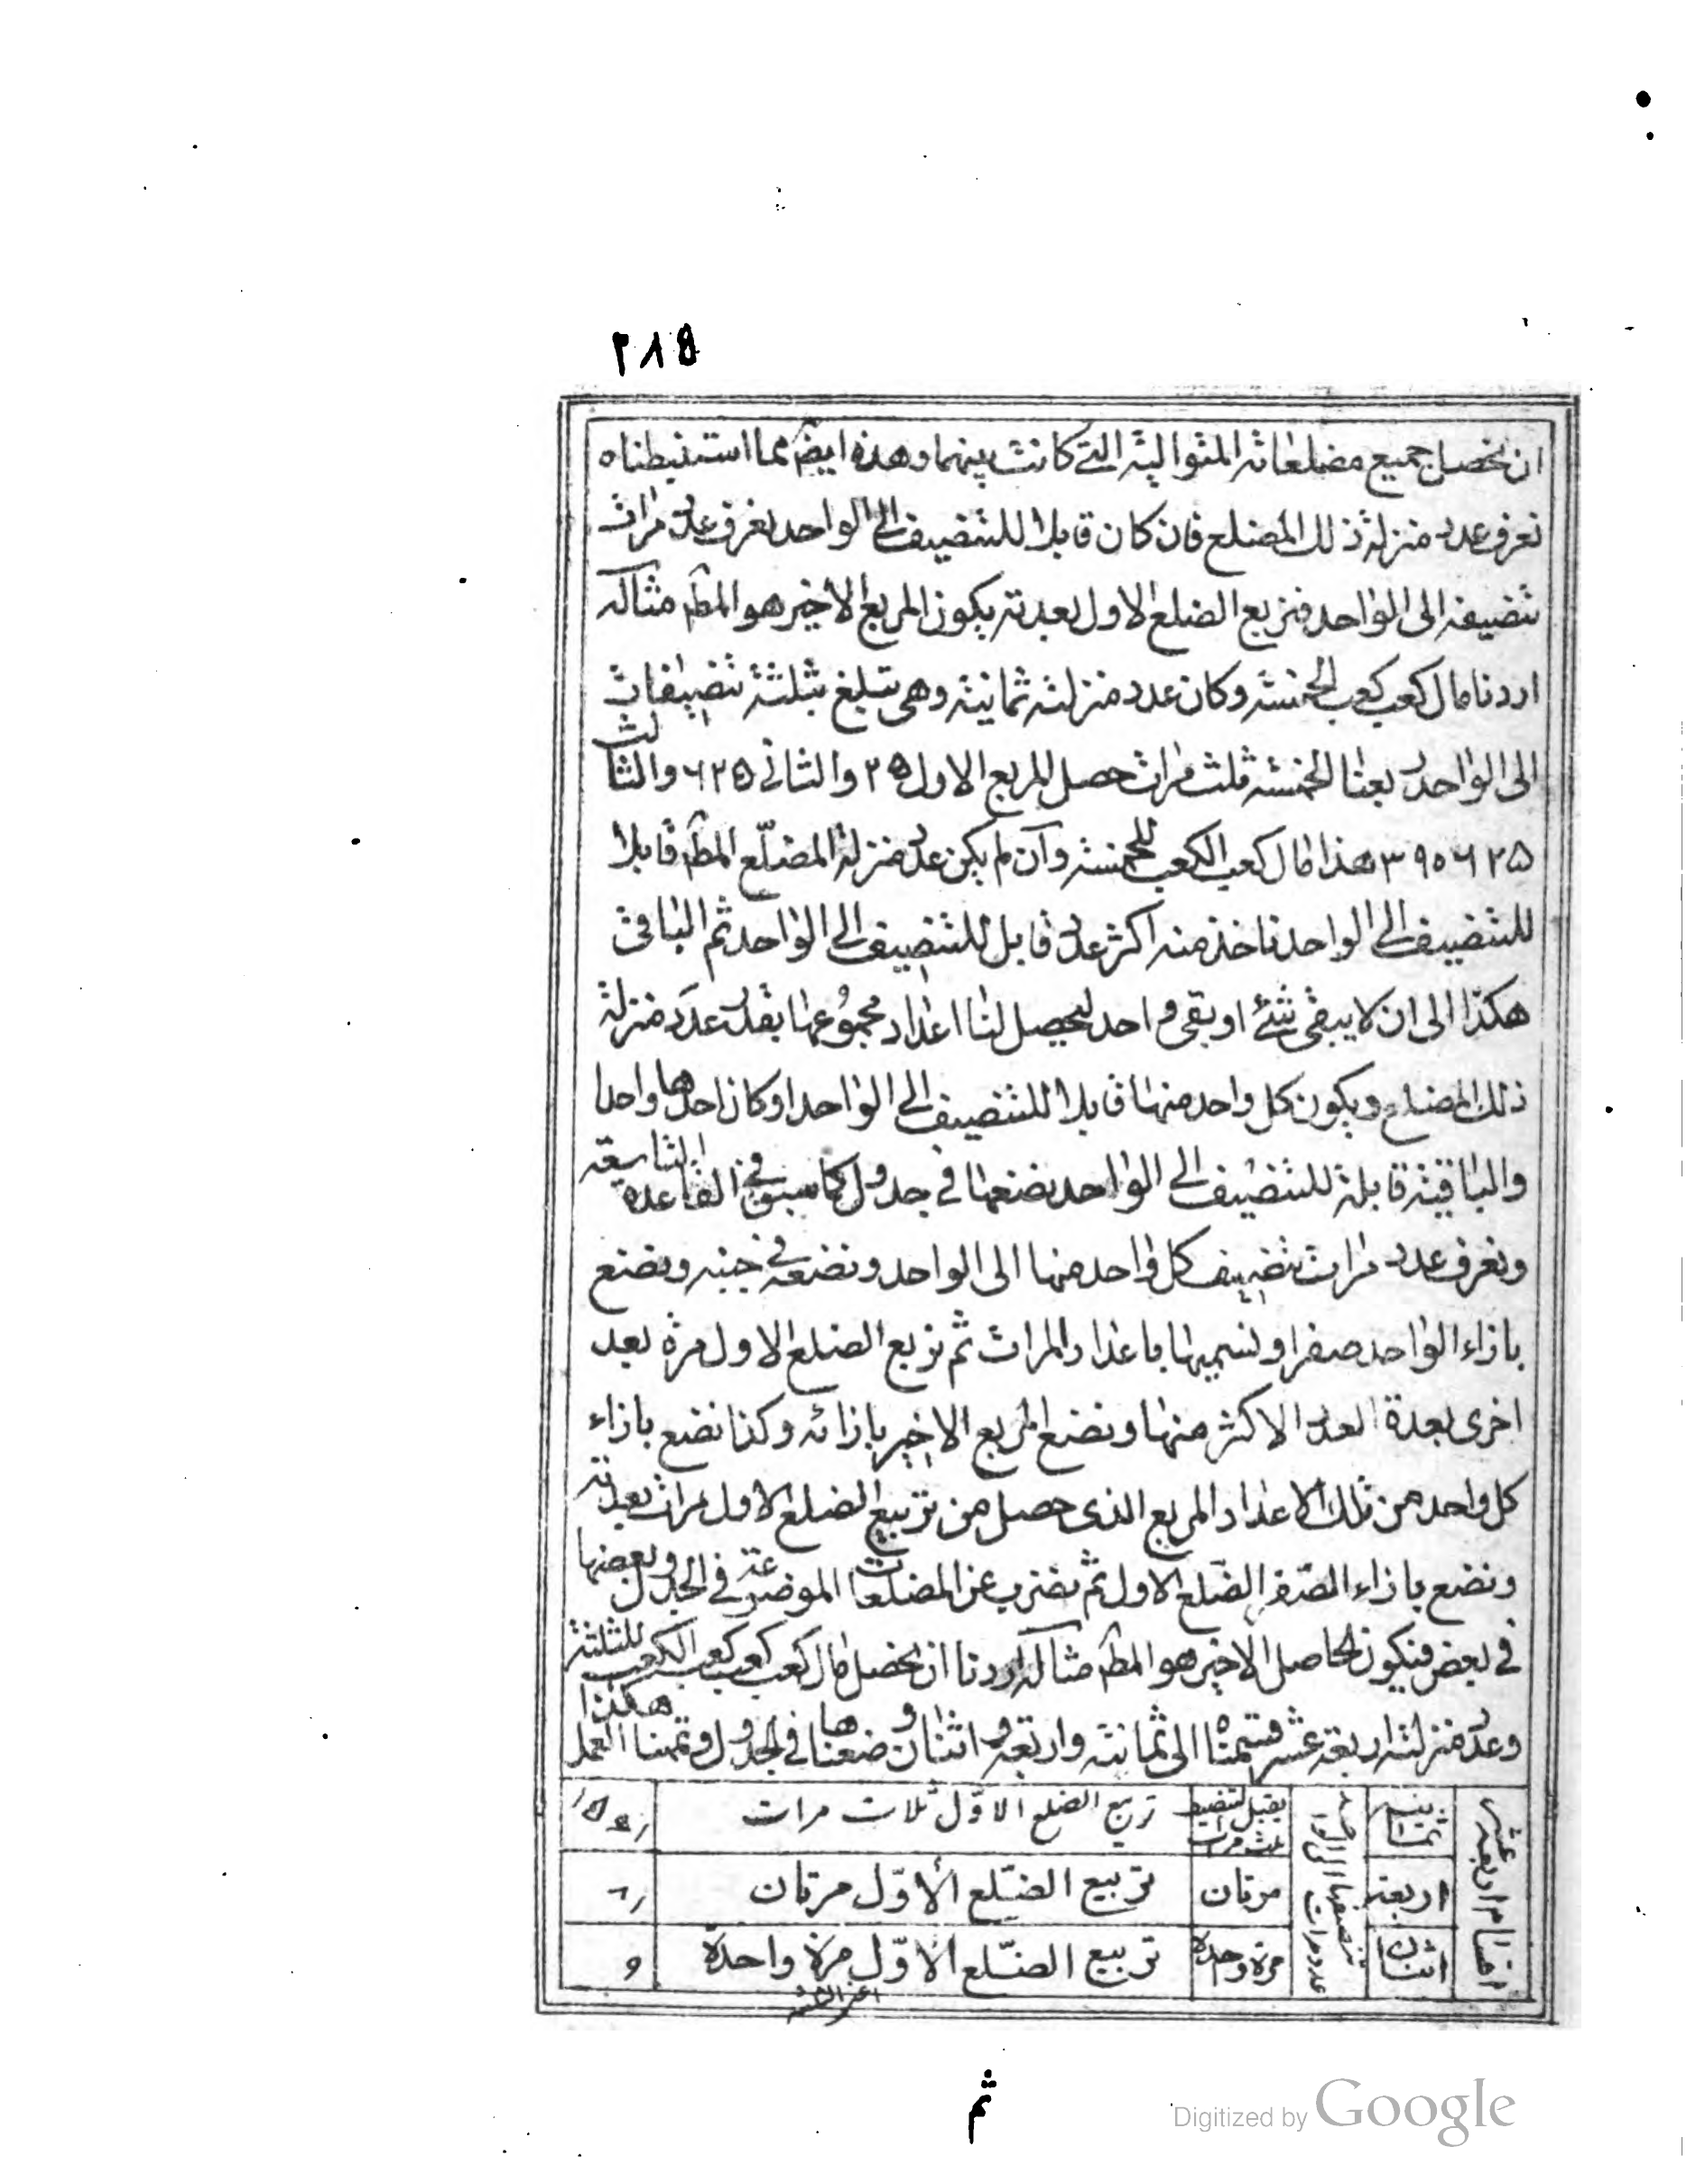 ۲۸۵
ان نحصل جميع مضلعاته المتوالية التى كانت بينهما وهذه ايضا مما استنبطناه
نعرف عدد منزلة ذلك المضلع فان كان قابلا للتنصيف الى الواحد نعرف عدد مرات
تنصيفه الى الواحد فنربع الضلع الاول بعدته يكون المربع الاخير هو المط مثاله
اردنا مال كعب كعب الخمسة وكان عدد منزلته ثمانية وهى تبلغ بثلثة تنصيفات
الى الواحد ربعنا الخمسة ثلث مرات حصل المربع الاول ۲۵ والثانى ۶۲۵ والثالث
۳۹۰۶۲۵ هذا مال كعب الكعب للخمسة وان لم يكن عدد منزلة المضلّع المط قابلا
للتنصيف الى الواحد ناخذ منه اكثر عدد قابل للتنصيف الى الواحد ثم الباقى
هكذا الى ان لا يبقى شئ او بقى واحد ليحصل لنا اعداد مجموعها بقدر عدد منزلة
ذلك المضلع ويكون كل واحد منها قابلا للتنصيف الى الواحد او كان احدها واحدا
والباقية قابلة للتنصيف الى الواحد نضعها فى جدول كما سبق فى القاعدة التاسعة
ونعرف عدد مرات تنصيف كل واحد منها الى الواحد ونضعه فى جنبه ونضع
بازاء الواحد صفرا ونسميها باعداد المرات ثم نربع الضلع الاول مرة بعد
اخرى بعدة العدد الاكثر منها ونضع المربع الاخير بازائه وكذا نضع بازاء
كل واحد من تلك الاعداد المربع الذى حصل من تربيع الضلع الاول مرات بعدته
ونضع بازاء الصّفر الضّلع الاول ثم نضرب المضلعات الموضوعة فى الجدول بعضها
فى بعض فيكون الحاصل الاخير هو المط مثاله اردنا ان نحصل مال كعب كعب كعب الكعب للثلثة
وعدد منزلته اربعة عشر قسمناه الى ثمانية واربعة واثنان ووضعناها فى الجدول وتممنا العمل هكذا
اقسام اربعة عشر
ثمانية
اربعة
اثنان
عدد مرات تنصيفها الى الواحد
يقبل التنصيف ثلث مرات
تربيع الضلع الاوّل ثلاث مرات
مرتان
تربيع الضّلع الأوّل مرتان
مرة واحدة
تربيع الضّلع الاوّل مرة واحدة
۹
ثم
Digitized by Google